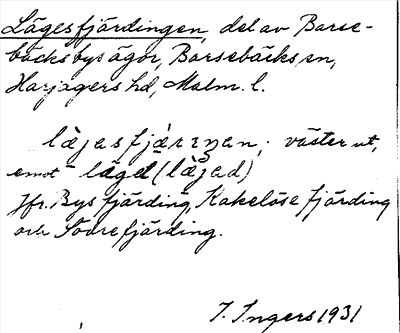 Lägesfjärdingen, del av Barse-
bäcks bys ägor, Barsebäcks sn,
Harjagers hd, Malm. l.
läjasfjärɪŋan; väster ut,
emot läget (läjad)
Jfr. Bysfjärding, Kakelösefjärding
och Södrefjärding.
I. Ingers 1931